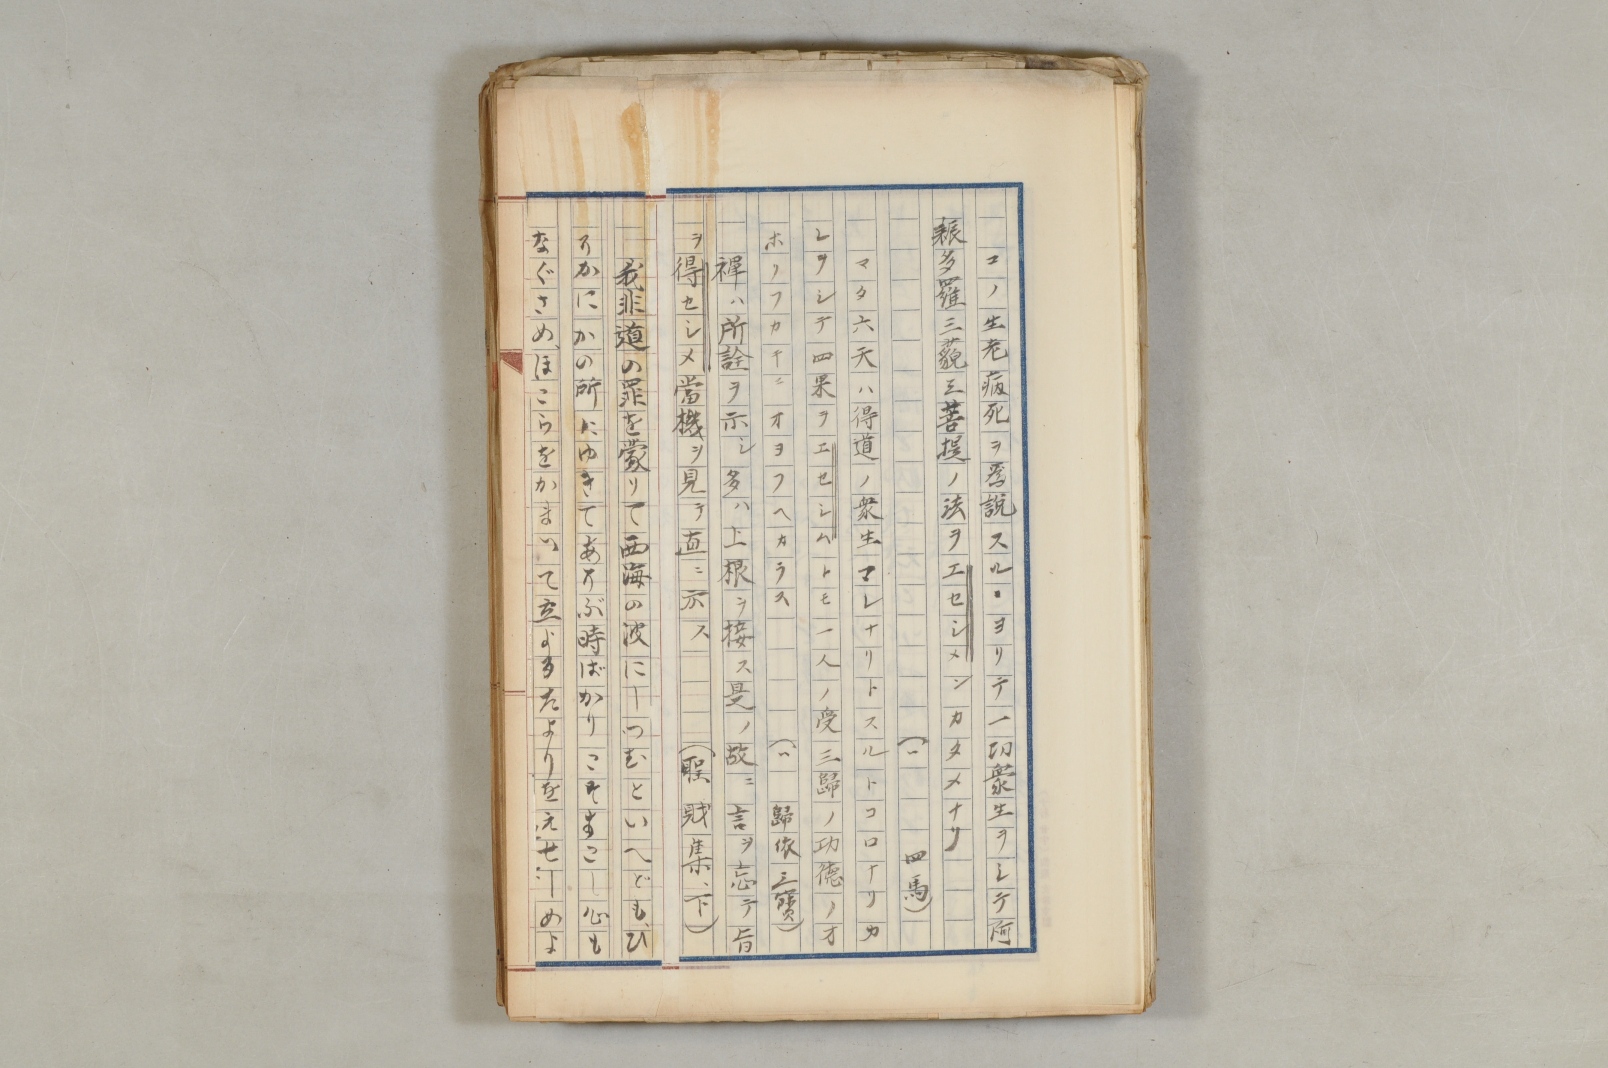 コノ生老病死ヲ爲説スル、ヨリテ一切衆生ヲシテ阿
耨多羅三藐三菩提ノ法ヲエセシメンカタメナリ
(〃 四馬)
マタ六天ハ得道ノ衆生マレナリトスルトコロナリカ
レヲシテ四果ヲエセシムトモ一人ノ受三歸ノ功德ノオ
ホリフカキニオヨフヘカラス
(〃 歸依三寶)
禪ハ所詮ヲ示シ多ハ上根ヲ接ス是ノ故ニ言ヲ忘テ旨
ヲ得セシメ當機ヲ見テ直ニ示ス
(聖財集、下)
我非道の罪を蒙りて西海の波にしつむといへども、ひ
そかにかの所にゆきてあそぶ時ばかりこそまこし心も
なぐさめ、ほこらをかまいて立よるたよりをえせしめよ